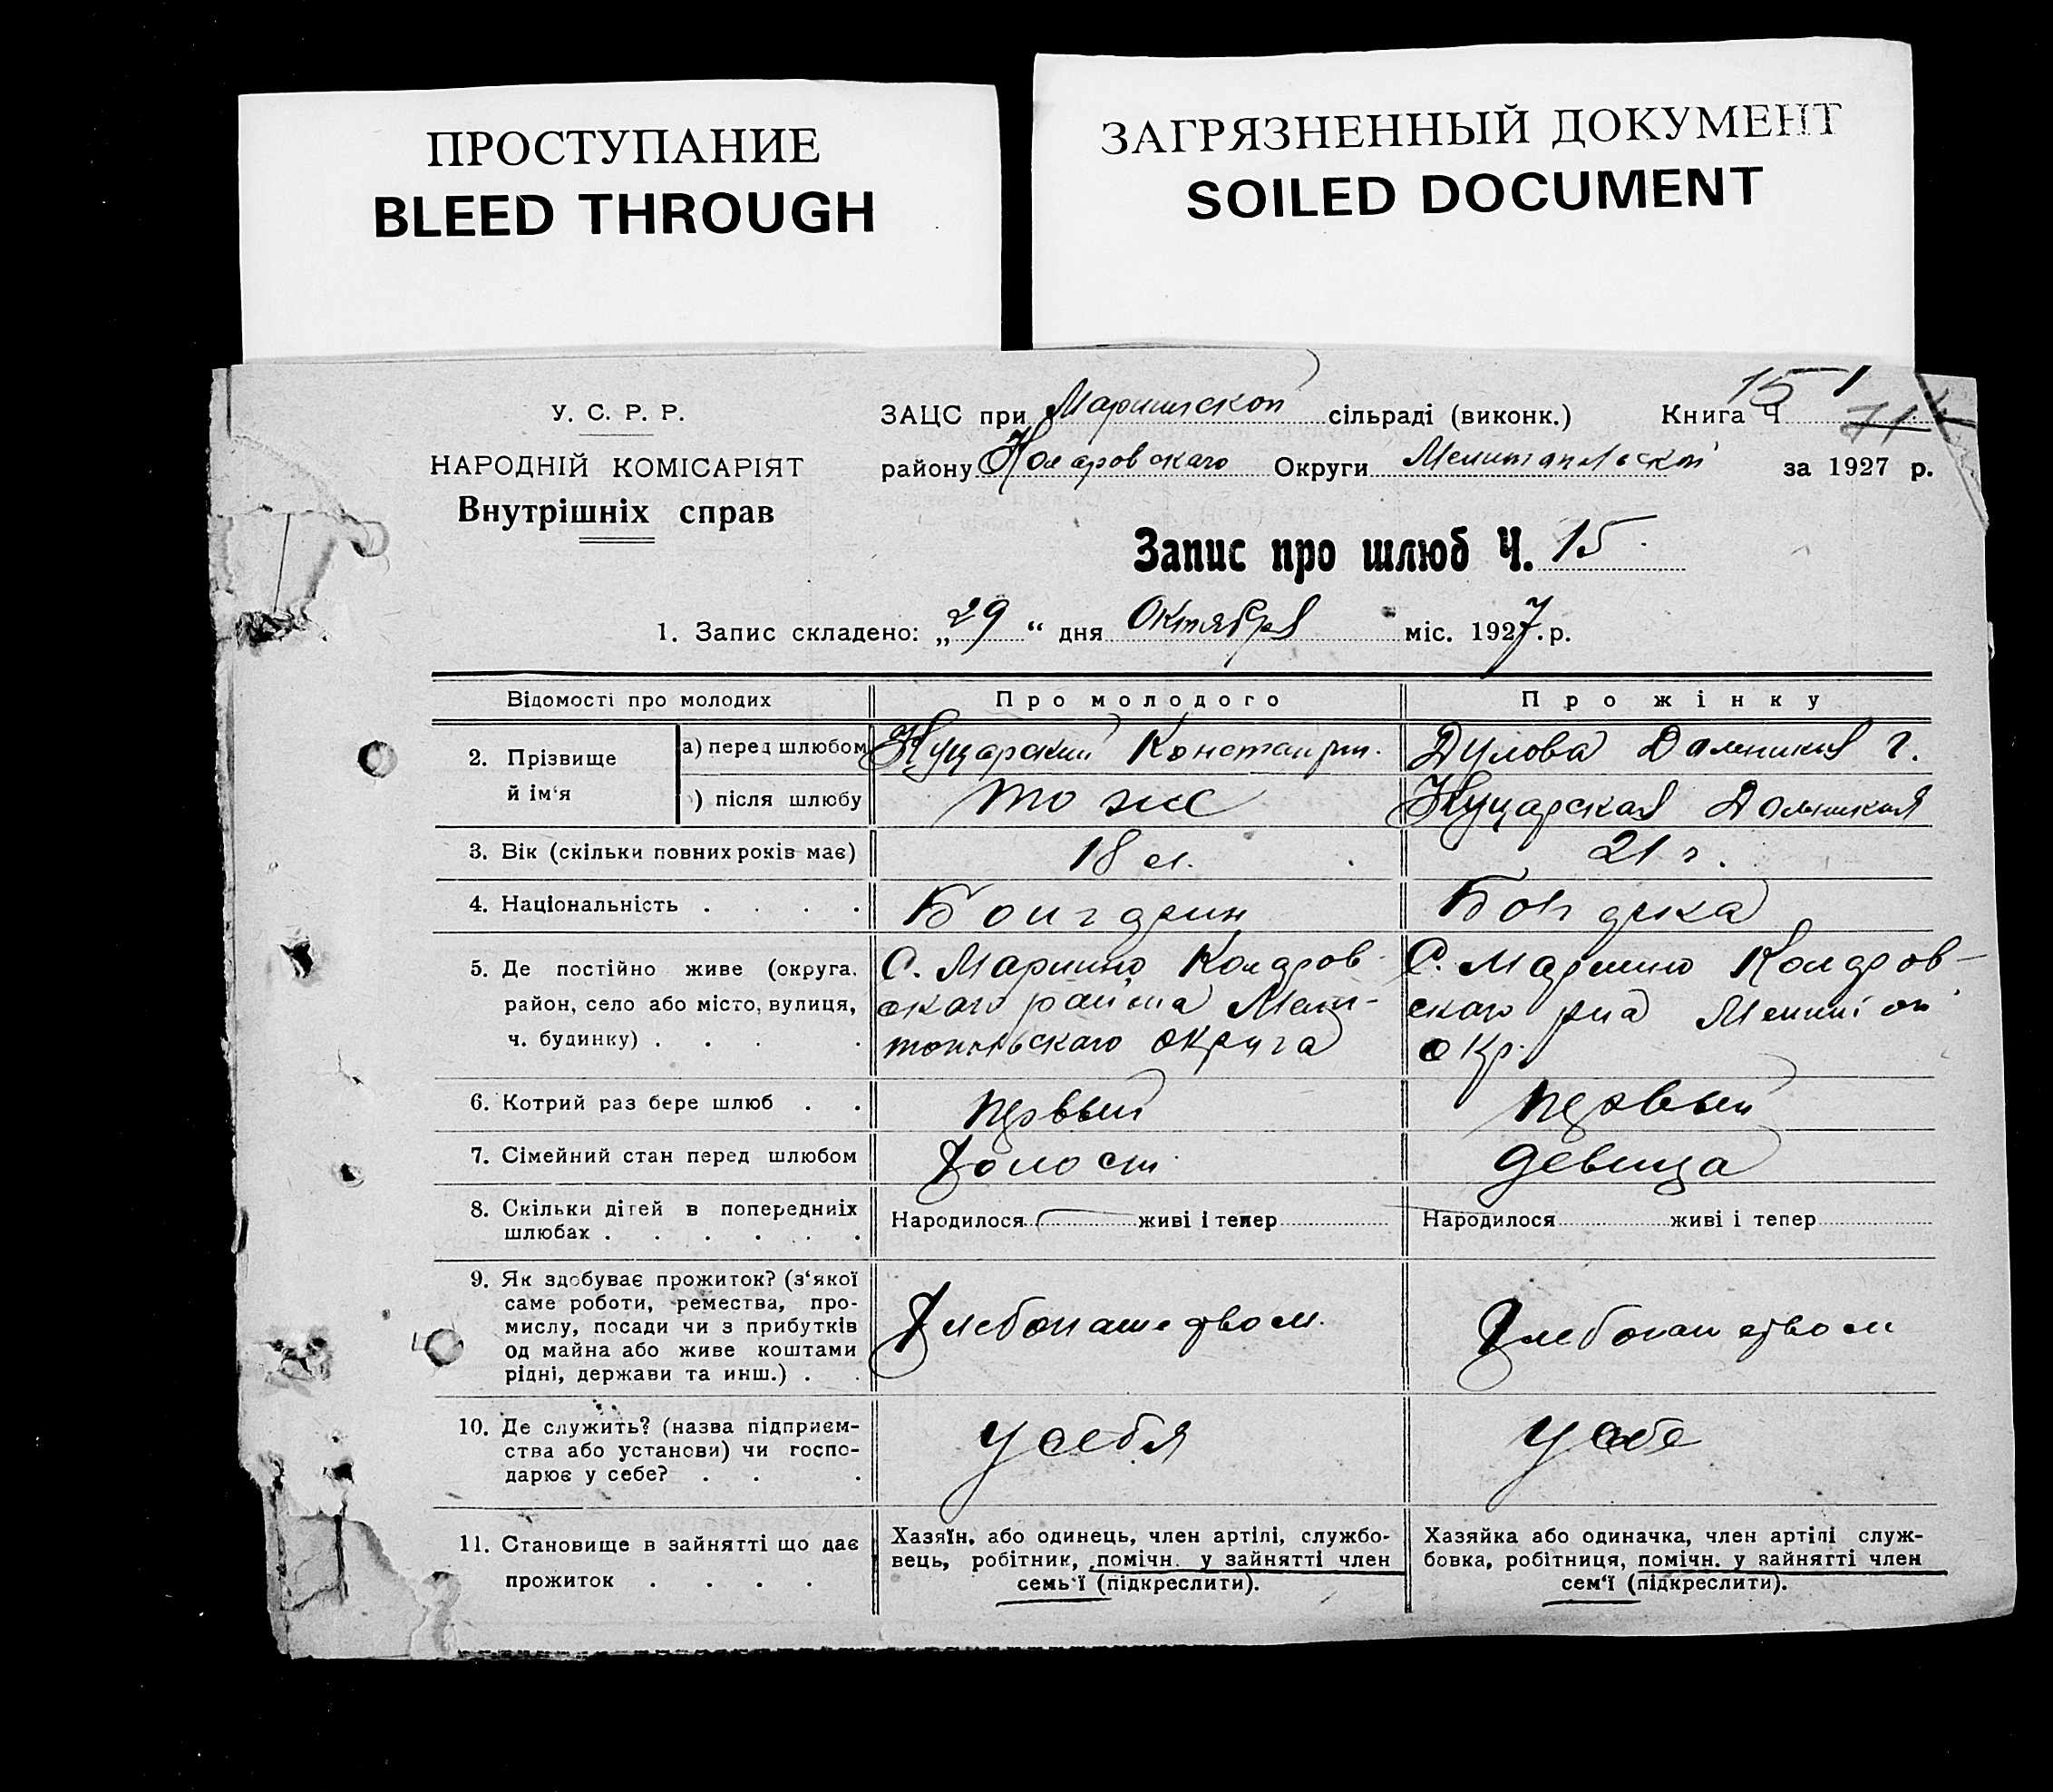 ПРОСТУПАНИЕ
BLEED THROUGH
ЗАГРЯЗНЕННЫЙ ДОКУМЕНТ
SOILED DOCUMENT
У. С. Р. Р.
НАРОДНІЙ КОМІСАРІЯТ
Внутрішніх справ
ЗАЦС при Мариинской сільраді (виконк.) Книга Ч 15 71
району Коларовского Округи Мелитопольской за 1927 р.
Запис про шлюб Ч. 15
1. Запис складено: „29“ дня Октября міс. 1927 р.
Відомості про молодих Про молодого Про жінку
2. Прізвище й ім‘я
а) перед шлюбом Куцарский Константин. Дулова Домникия Г.
) після шлюбу то же Куцарская Домникия
3. Вік (скільки повних років має) 18 л. 21 г.
4. Національність . . . . Болгарин Болгарка
5. Де постійно живе (округа, С. Марино Коларов- С. Марино Коларов-
район, село або місто, вулиця, скаго района Мели- скаго рна Мелит
ч. будинку) . . . . топольскаго округа окр.
6. Котрий раз бере шлюб . . первый первый
7. Сімейний стан перед шлюбом Холост девица
8. Скільки дітей в попередніх
шлюбах . . . . . . Народилося живі і тепер Народилося живі і тепер
9. Як здобуває прожиток? (з‘якої
саме роботи, ремества, про-
мислу, посади чи з прибутків Хлебопашеством. Хлебопашеством
од майна або живе коштами
рідні, держави та инш.) . .
10. Де служить? (назва підприєм-
ства або установи) чи госпо- У себя У себе
дарює у себе? . . .
11. Становище в зайнятті що дає
прожиток . . . .
Хазяїн, або одинець, член артілі, службо-
вець, робітник, помічн. у зайнятті член
семь‘ї (підкреслити).
Хазяйка або одиначка, член артілі служ-
бовка, робітниця, помічн. у зайнятті член
сем‘ї (підкреслити).